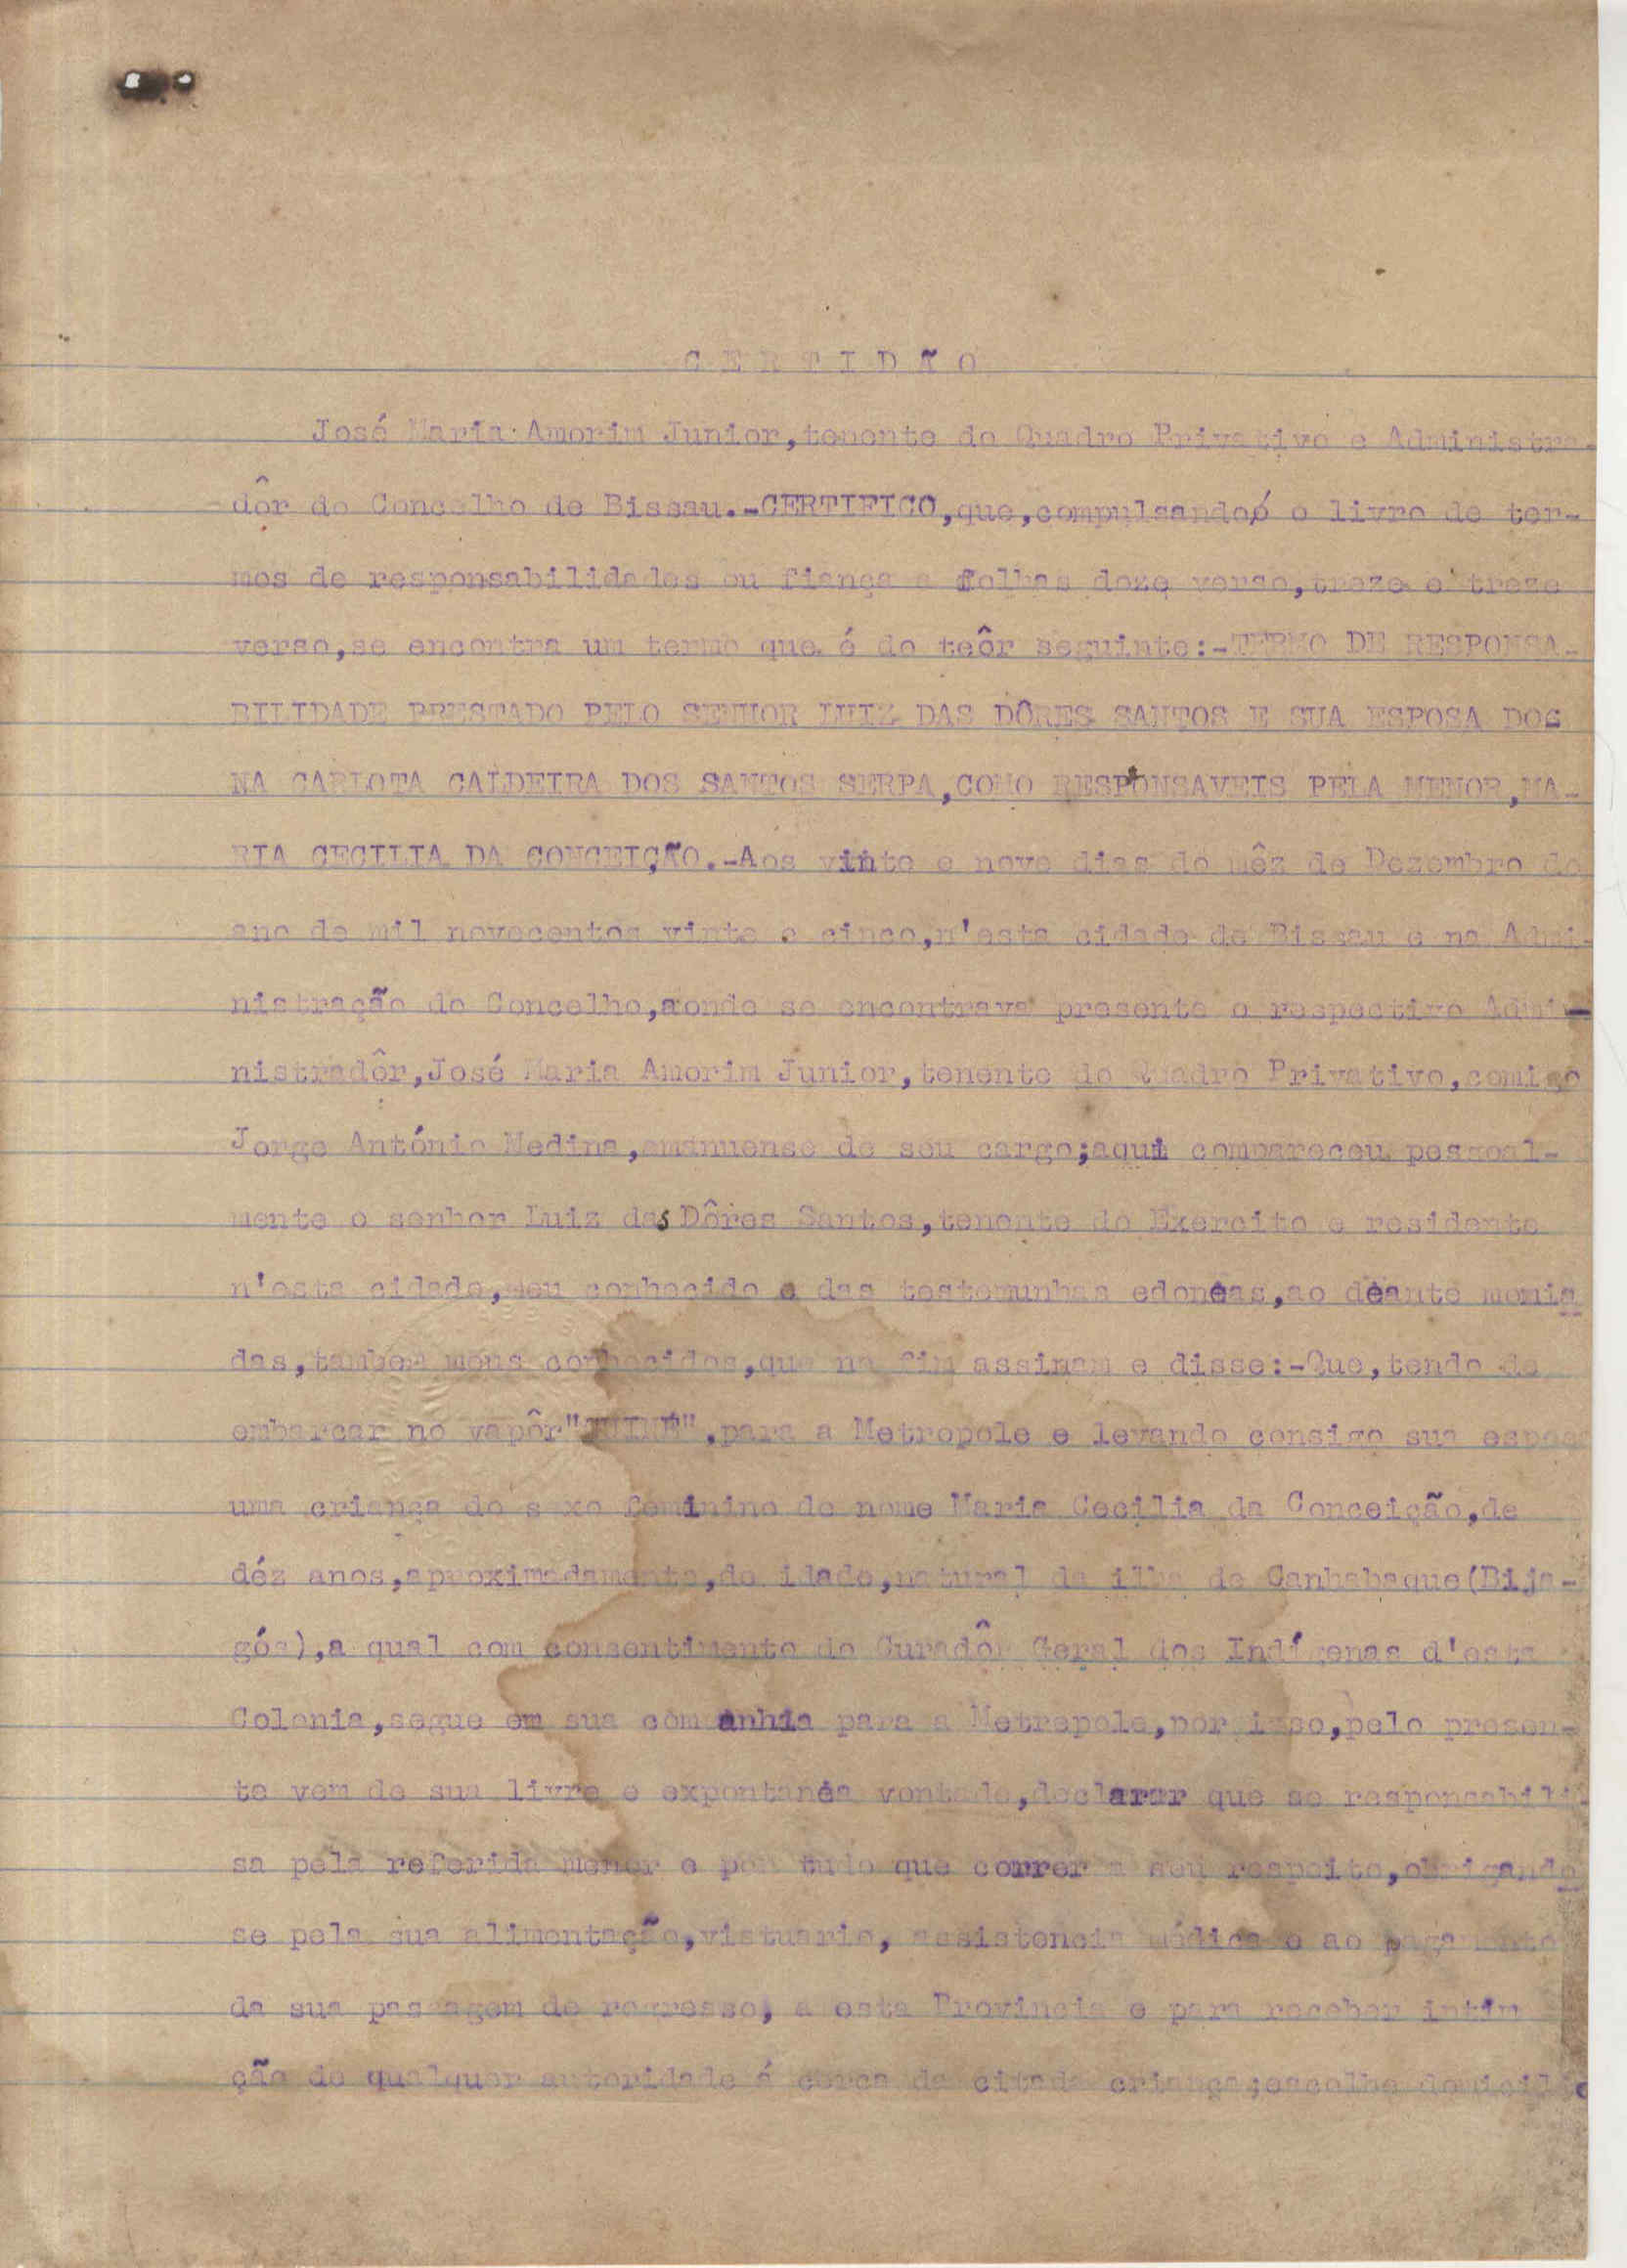 CERTIDÃO
José Maria Amorim Junior,tenente do Quadro Privativo e Administra-
dôr do Concelho de Bissau.-CERTIFICO,que,compulsando o livro de ter-
mos de responsabilidades ou fiança a folhas doze verso,treze e treze
verso,se encontra um termo que é do teôr seguinte:-TERMO DE RESPONSA-
BILIDADE PRESTADO PELO SENHOR LUIZ DAS DÔRES SANTOS E SUA ESPOSA DO-
NA CARLOTA CALDEIRA DOS SANTOS SERPA,COMO RESPONSAVEIS PELA MENOR,MA-
RIA CECILIA DA CONCEIÇÃO.-Aos vinte e nove dias do mêz de Dezembro do
ano de mil novecentos vinte e cinco,n'esta cidade de Bissau e na Admi-
nistração do Concelho,aonde se encontrava presente o respectivo Admi-
nistradôr,José Maria Amorim Junior,tenente do Quadro Privativo,comigo
Jorge António Medina,amanuense de seu cargo;aqui compareceu pessoal-
mente o senhor Luiz das Dôres Santos,tenente do Exercito e residente
n'esta cidade,meu conhecido e das testemunhas edoneas,ao deante
das,tambem meus conhecidos,que no fim assinam e disse:-Que,tendo de
embarcar no vapôr ,para a Metropole e levando consigo sua
uma criança do sexo feminino de nome Maria Cecilia da Conceição,de
déz anos,aproximadamente,de idade,natural da ilha de Canhabaque(Bija-
gós),a qual com consentimento do Curadôr Geral dos Indígenas d'esta
Colonia,segue em sua companhia para a Metropole,por isso,pelo presen-
te vem de sua livre e expontanea vontade,declarar que se responsabili-
sa pela referida menor e por tudo que correr a seu respeito,obrigando
se pela sua alimentação,vistuario, assistencia médica e ao pagamento
da sua passagem de regresso, a esta Provincia e para receber intim
ção de qualquer autoridade á cerca da citada criança;escolhe domicilio